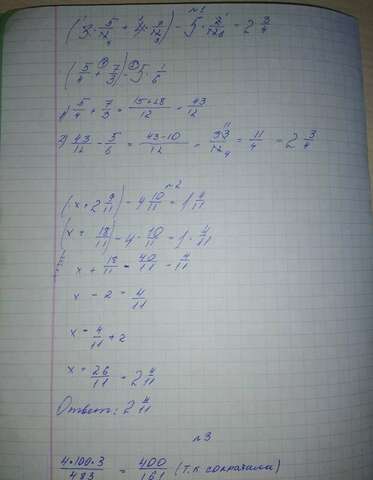 №1
(3·5/12 + 4·7/12) - 5·2/12 = 2 3/4
(5/4 + 7/3) - 5·1/6
1) 5/4 + 7/3 = 15+28/12 = 43/12
2) 43/12 - 5/6 = 43-10/12 = 33/12 = 11/4 = 2 3/4
№2
(x + 2 9/11) - 4 10/11 = 1 4/11
(x + 18/11) - 4·10/11 = 1·4/11
x + 18/11 = 40/11 - 4/11
x - 2 = 4/11
x = 4/11 + 2
x = 26/11 = 2 4/11
Ответ: 2 4/11
№3
4·100·3/483 = 400/161 (т.к сократили)